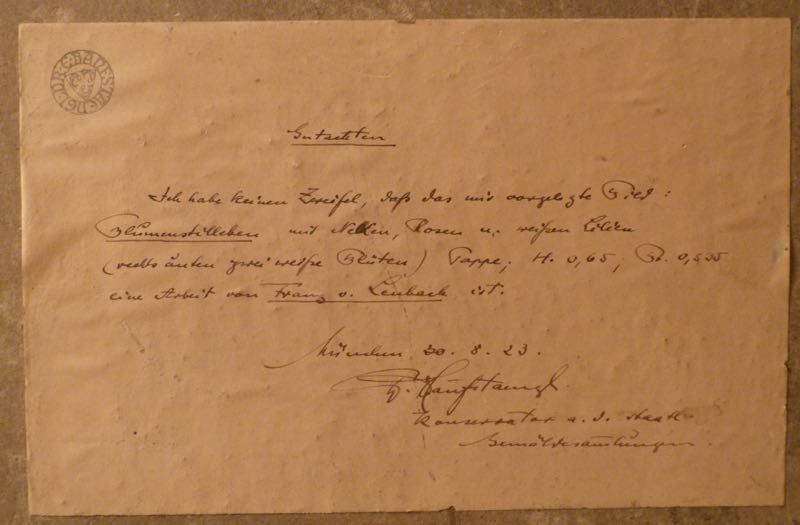 DR. E. HANFSTAENGL
Gutachten
Ich habe keinen Zweifel, daß das mir vorgelegte Bild:
Blumenstilleben mit Nelken, Rosen u. weißen Lilien
(rechts unten zwei weiße Blüten) Pappe, H. 0,65, Br. 0,535
eine Arbeit von Franz v. Lenbach ist.
München 20. 8. 23.
E. Hanfstaengl
Konservator a. d. Staatl.
Gemäldesammlungen.